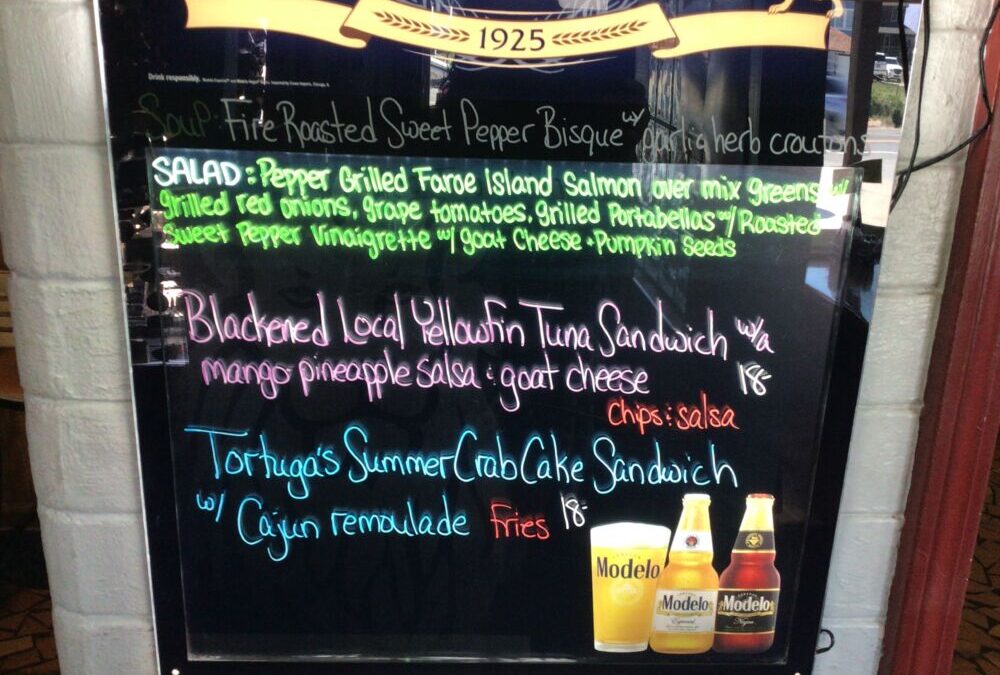 1925
Drink responsibly.
Soup: Fire Roasted Sweet Pepper Bisque w/ garlic herb croutons
SALAD: Pepper Grilled Faroe Island Salmon over mix greens w/
grilled red onions, grape tomatoes, grilled Portabellas w/ Roasted
Sweet Pepper Vinaigrette w/ goat Cheese + Pumpkin Seeds
Blackened Local Yellowfin Tuna Sandwich w/a
mango pineapple salsa : goat cheese 18-
Chips : salsa
Tortuga's Summer Crab Cake Sandwich
w/ Cajun remoulade Fries 18-
Modelo
Modelo
Especial
Modelo
Negra